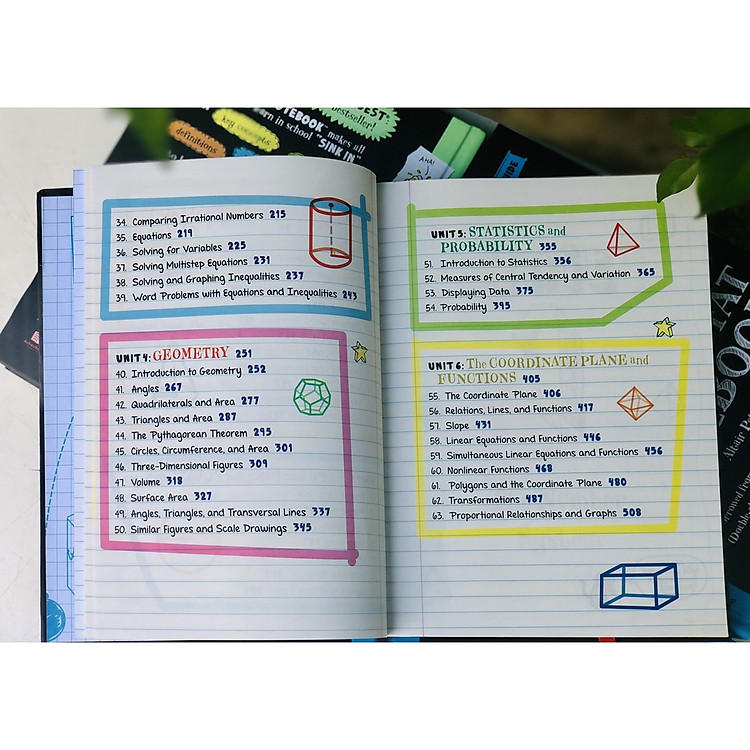 BEST
bestseller!
NOTEBOOK™ makes all
key concepts
learn in school "SINK IN"
definitions
AHA!
34. Comparing Irrational Numbers 215
35. Equations 219
36. Solving for Variables 225
37. Solving Multistep Equations 231
38. Solving and Graphing Inequalities 237
39. Word Problems with Equations and Inequalities 243
UNIT 4: GEOMETRY 251
40. Introduction to Geometry 252
41. Angles 267
42. Quadrilaterals and Area 277
43. Triangles and Area 287
44. The Pythagorean Theorem 295
45. Circles, Circumference, and Area 301
46. Three-Dimensional Figures 309
47. Volume 318
48. Surface Area 327
49. Angles, Triangles, and Transversal Lines 337
50. Similar Figures and Scale Drawings 345
UNIT 5: STATISTICS and
PROBABILITY 355
51. Introduction to Statistics 356
52. Measures of Central Tendency and Variation 365
53. Displaying Data 375
54. Probability 395
UNIT 6: The COORDINATE PLANE and
FUNCTIONS 405
55. The Coordinate Plane 406
56. Relations, Lines, and Functions 417
57. Slope 431
58. Linear Equations and Functions 446
59. Simultaneous Linear Equations and Functions 456
60. Nonlinear Functions 468
61. Polygons and the Coordinate Plane 480
62. Transformations 487
63. Proportional Relationships and Graphs 508
Altair
(Double